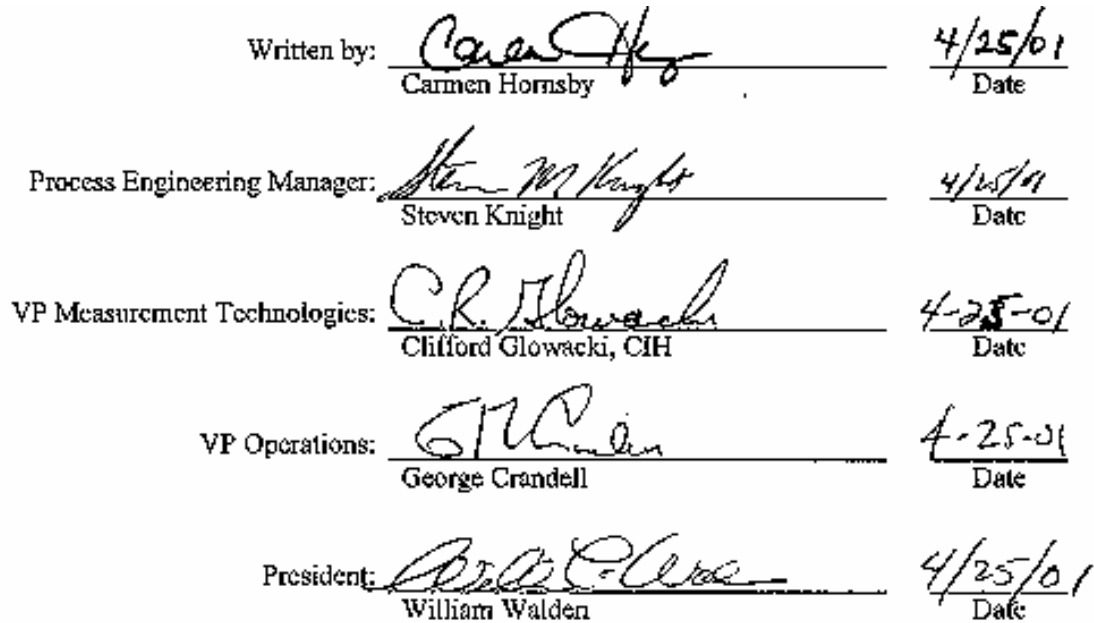 Written by: Carmen Hornsby 4/25/01
Carmen Hornsby Date
Process Engineering Manager: Steven M Knight 4/25/01
Steven Knight Date
VP Measurement Technologies: C.R. Glowacki 4-25-01
Clifford Glowacki, CIH Date
VP Operations: 4-25-01
George Crandell Date
President: 4/25/01
William Walden Date